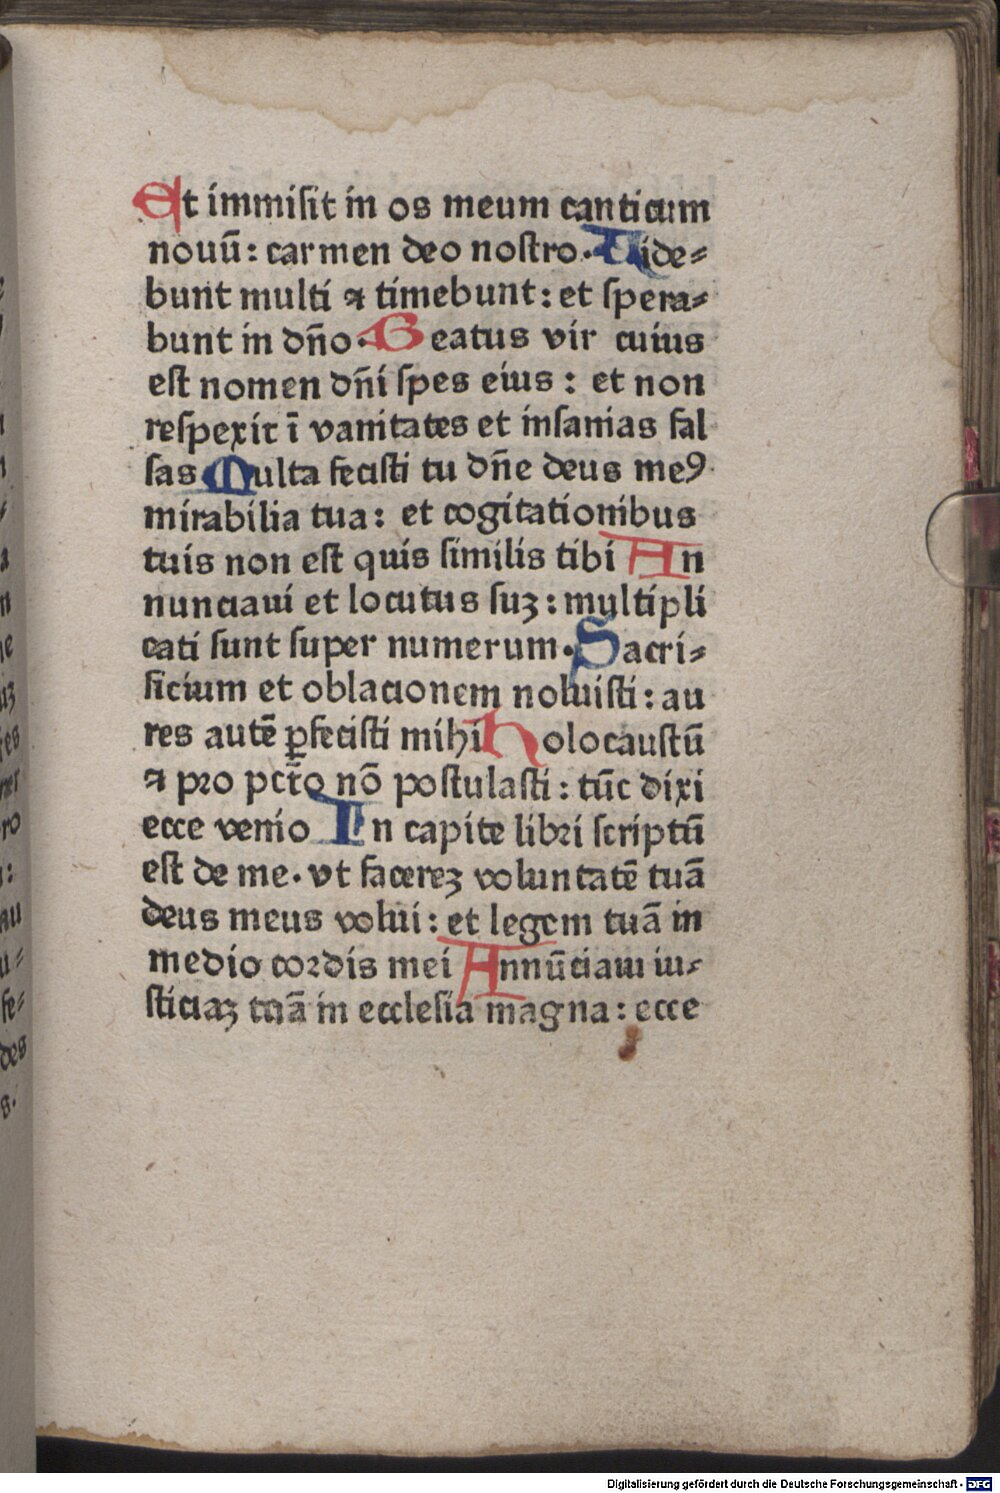 Et immisit in os meum canticum
nouū: carmen deo nostro. Uide=
bunt multi ⁊ timebunt: et spera=
bunt in dn̄o. Beatus vir cuius
est nomen dn̄i spes eius: et non
respexit ī vanitates et insanias fal
sas Multa fecisti tu dn̄e deus meꝰ
mirabilia tua: et cogitationibus
tuis non est quis similis tibi An
nunciaui et locutus suꝫ: multipli
cati sunt super numerum. Sacri=
ficium et oblacionem noluisti: au
res autē ꝑfecisti mihi holocaustū
⁊ pro pctō nō postulasti: tūc dixi
ecce venio In capite libri scriptū
est de me. vt facereꝫ voluntatē tuā
deus meus volui: et legem tuā in
medio cordis mei Annūciaui iu=
sticiaꝫ tuā in ecclesia magna: ecce
Digitalisierung gefördert durch die Deutsche Forschungsgemeinschaft - DFG